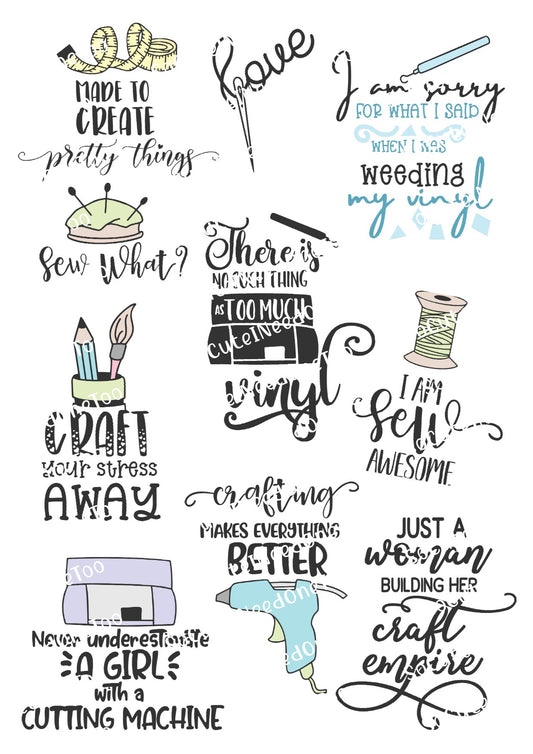 MADE TO
CREATE
pretty things
love
I am sorry
FOR WHAT I SAID
WHEN I WAS
WEEDING
my vinyl
Sew What?
There is
NO SUCH THING
AS TOO MUCH
CuteINeedOneToo
vinyl
I AM
Sew
AWESOME
CRAFT
your stress
AWAY
crafting
MAKES EVERYTHING
BETTER
JUST A
woman
BUILDING HER
craft
empire
Never underestimate
A GIRL
with a
CUTTING MACHINE